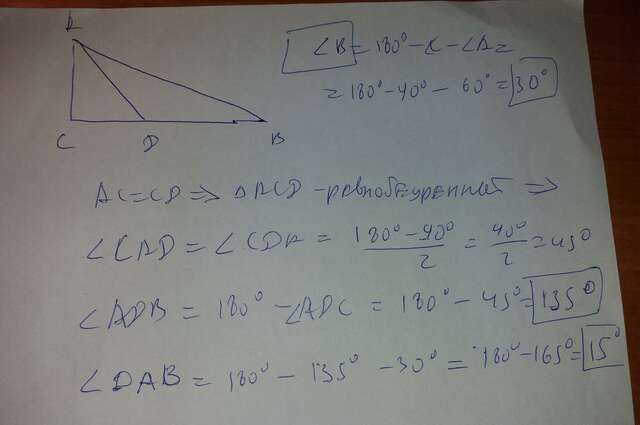 A
C D B
∠B = 180° - C - ∠A =
= 180° - 90° - 60° = 30°
AC = CD ⇒ △ACD - равнобедренный ⇒
∠CAD = ∠CDA = (180° - 90°)/2 = 90°/2 = 45°
∠ADB = 180° - ∠ADC = 180° - 45° = 135°
∠DAB = 180° - 135° - 30° = 180° - 165° = 15°